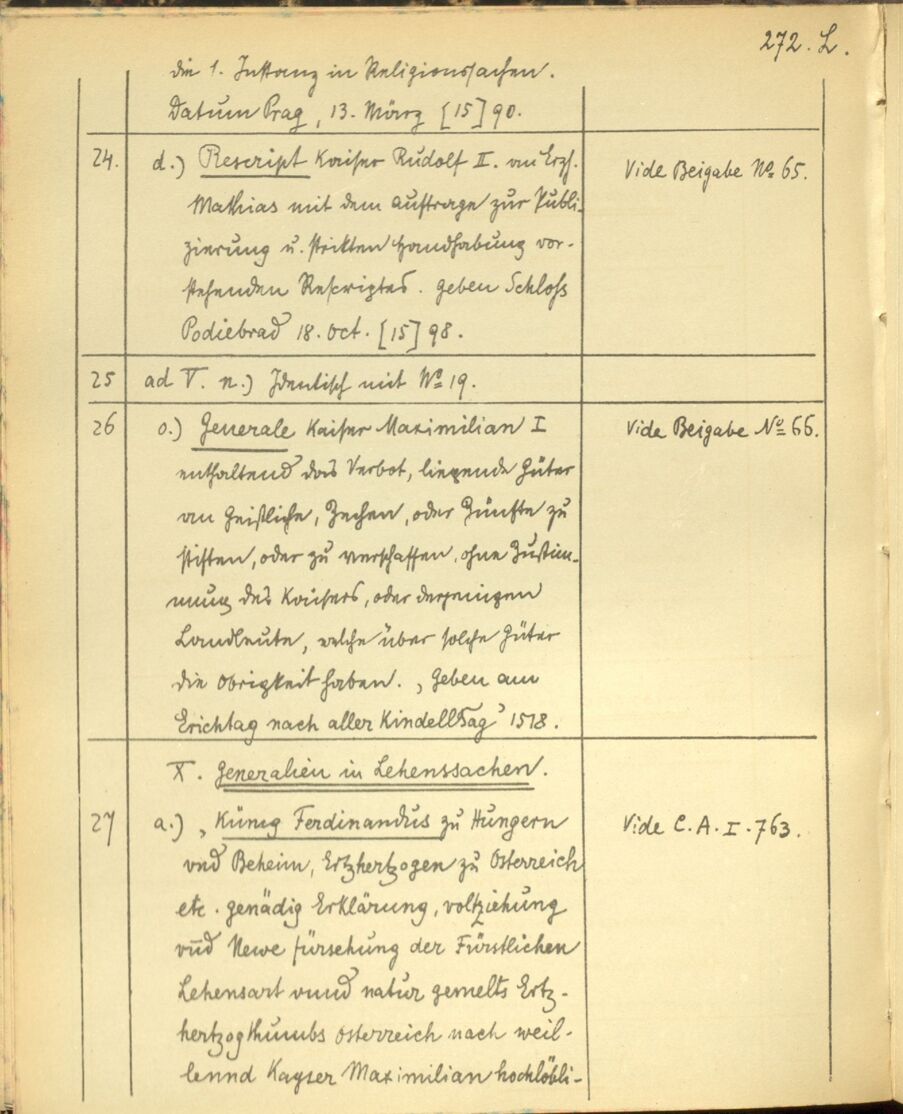 272. L.
die 1. Instanz in Religionssachen.
Datum Prag, 13. März [15]90.
24. d.) Rescript Kaiser Rudolf II. an Erzh. Vide Beigabe № 65.
Mathias mit dem Auftrage zur Publi-
zierung u. strikten Handhabung vor-
stehenden Rescriptes. Geben Schloss
Podiebrad 18. Oct. [15]98.
25 ad V. n.) Identisch mit № 19.
26 o.) Generale Kaiser Maximilian I Vide Beigabe № 66.
enthaltend das Verbot, liegende Güter
an Geistliche, Zechen, oder Zünfte zu
stiften, oder zu verschaffen, ohne Zustim-
mung des Kaisers, oder derjenigen
Landleute, welche über solche Güter
die Obrigkeit haben. „Geben am
Erichtag nach aller Kindell Tag" 1518.
X. Generalien in Lehenssachen.
27 a.) „Künig Ferdinandus zu Hungern Vide C. A. I. 763.
vnd Beheim, Ertzhertzogen zu Osterreich
etc. genädig Erklärung, voltziehung
vnd Newe fürsehung der Fürstlichen
Lehensart vnnd natur gemelts Ertz-
hertzogthumbs Osterreich nach weil-
lennd Kayser Maximilian hochlöbli-